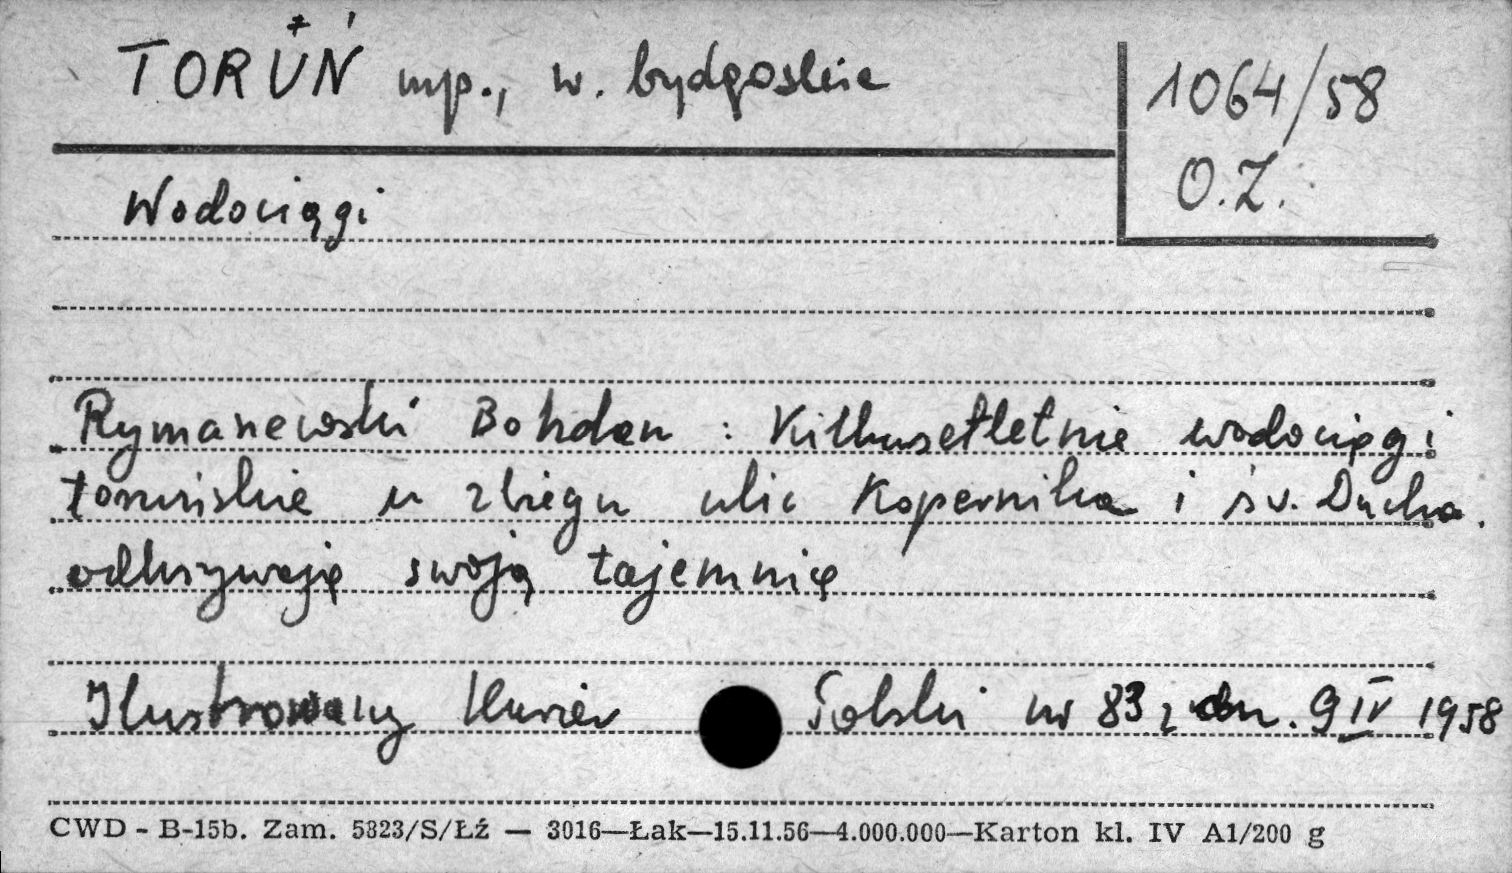 TORUŃ mp., w. bydgoskie
1064/58
O.Z.
Wodociągi
Rymanewski Bohdan : Kilkusetletnie wodociągi
toruńskie u zbiegu ulic Kopernika i św. Ducha.
odkrywają swoją tajemnicę
Ilustrowany Kurier Polski nr 83 z dn. 9 IV 1958
CWD - B-15b. Zam. 5823/S/Łź — 3016—Łak—15.11.56—4.000.000—Karton kl. IV A1/200 g